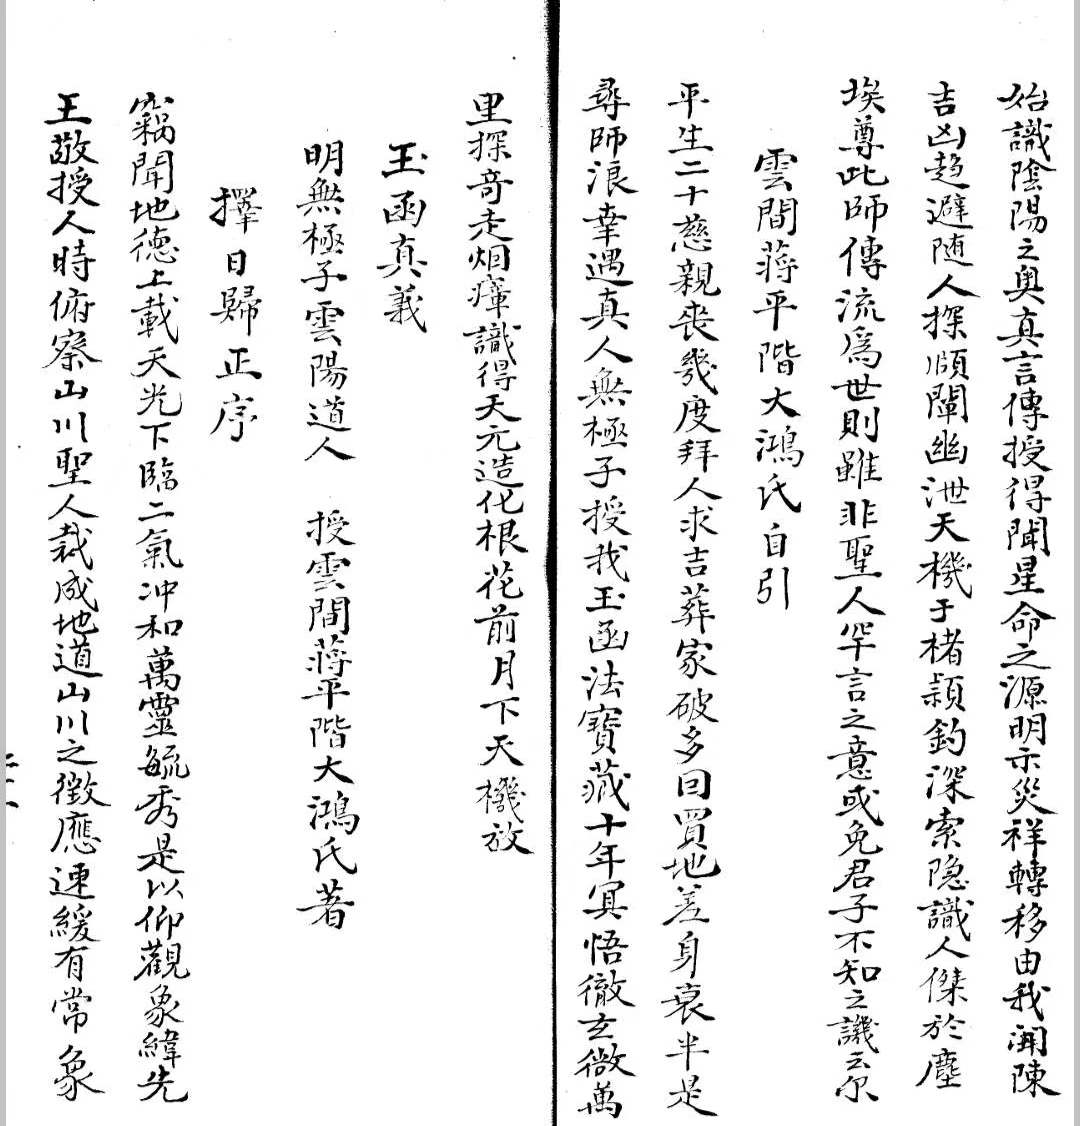 始識陰陽之奥真言傳授得聞星命之源明示災祥轉移由我開陳
吉凶趋避随人探頤闡幽泄天機于楮穎鈞深索隐識人傑於塵
埃尊此師傳流為世則雖非聖人罕言之意或免君子不知之譏云尔
雲間蔣平階大鴻氏自引
平生二十慈親丧幾度拜人求吉葬家破多因買地差身衰半是
尋師浪幸遇真人無極子授我玉函法寶藏十年冥悟徹玄微萬
里探奇走烟瘴識得天元造化根花前月下天機放
玉函真義
明無極子雲陽道人 授雲間蔣平階大鴻氏著
擇日歸正序
竊聞地德上載天光下臨二氣冲和萬靈毓秀是以仰觀象緯先
王敬授人時俯察山川聖人裁成地道山川之徵應速緩有常象